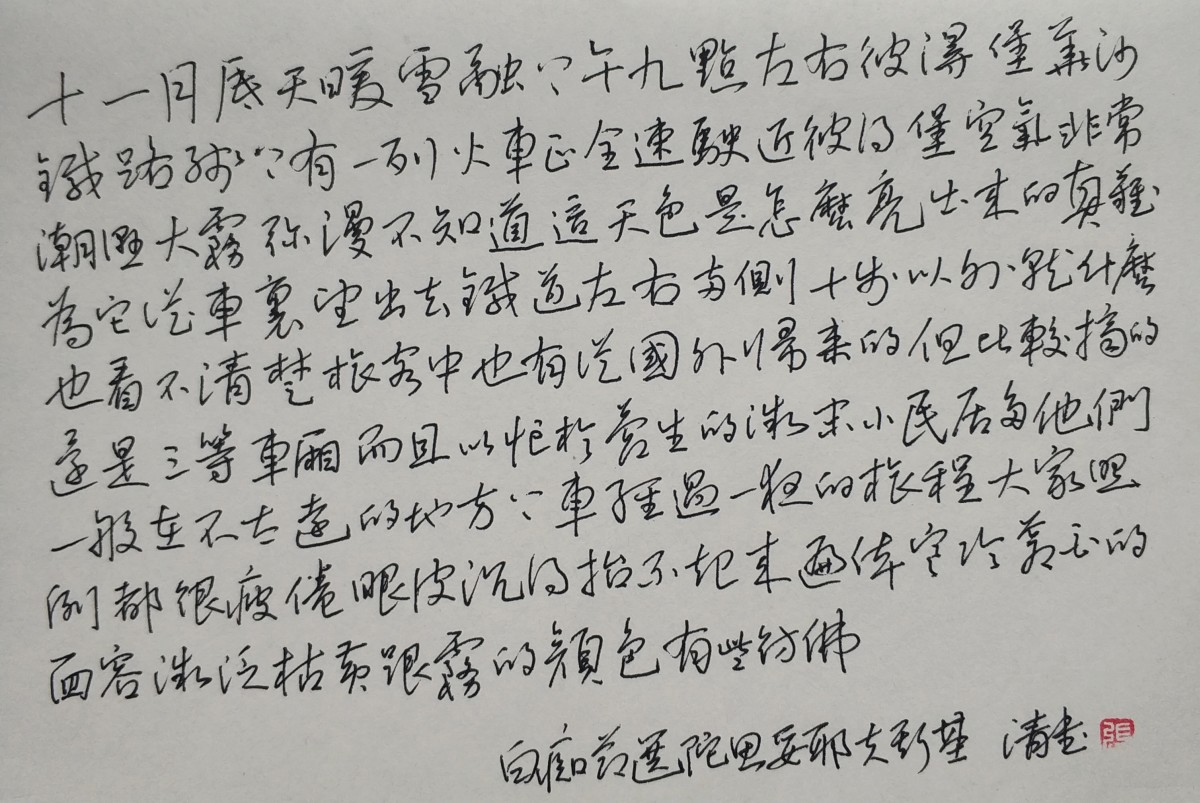 十一月底天暖雪融上午九點左右彼得堡華沙
鐵路線上有一列火車正全速駛近彼得堡空氣非常
潮濕大霧弥漫不知道這天色是怎麼亮出来的真難
為它從車裏望出去鐵道左右两側十步以外就什麼
也看不清楚旅客中也有從國外歸来的但比較擠的
還是三等車厢而且以忙於营生的微末小民居多他們
一般在不太遠的地方上車經過一夜的旅程大家照
例都很疲倦眼皮沉得抬不起来遍体寒冷蒼白的
面容微泛枯黄跟霧的顔色有些彷彿
白痴節選陀思妥耶夫斯基 清書
張